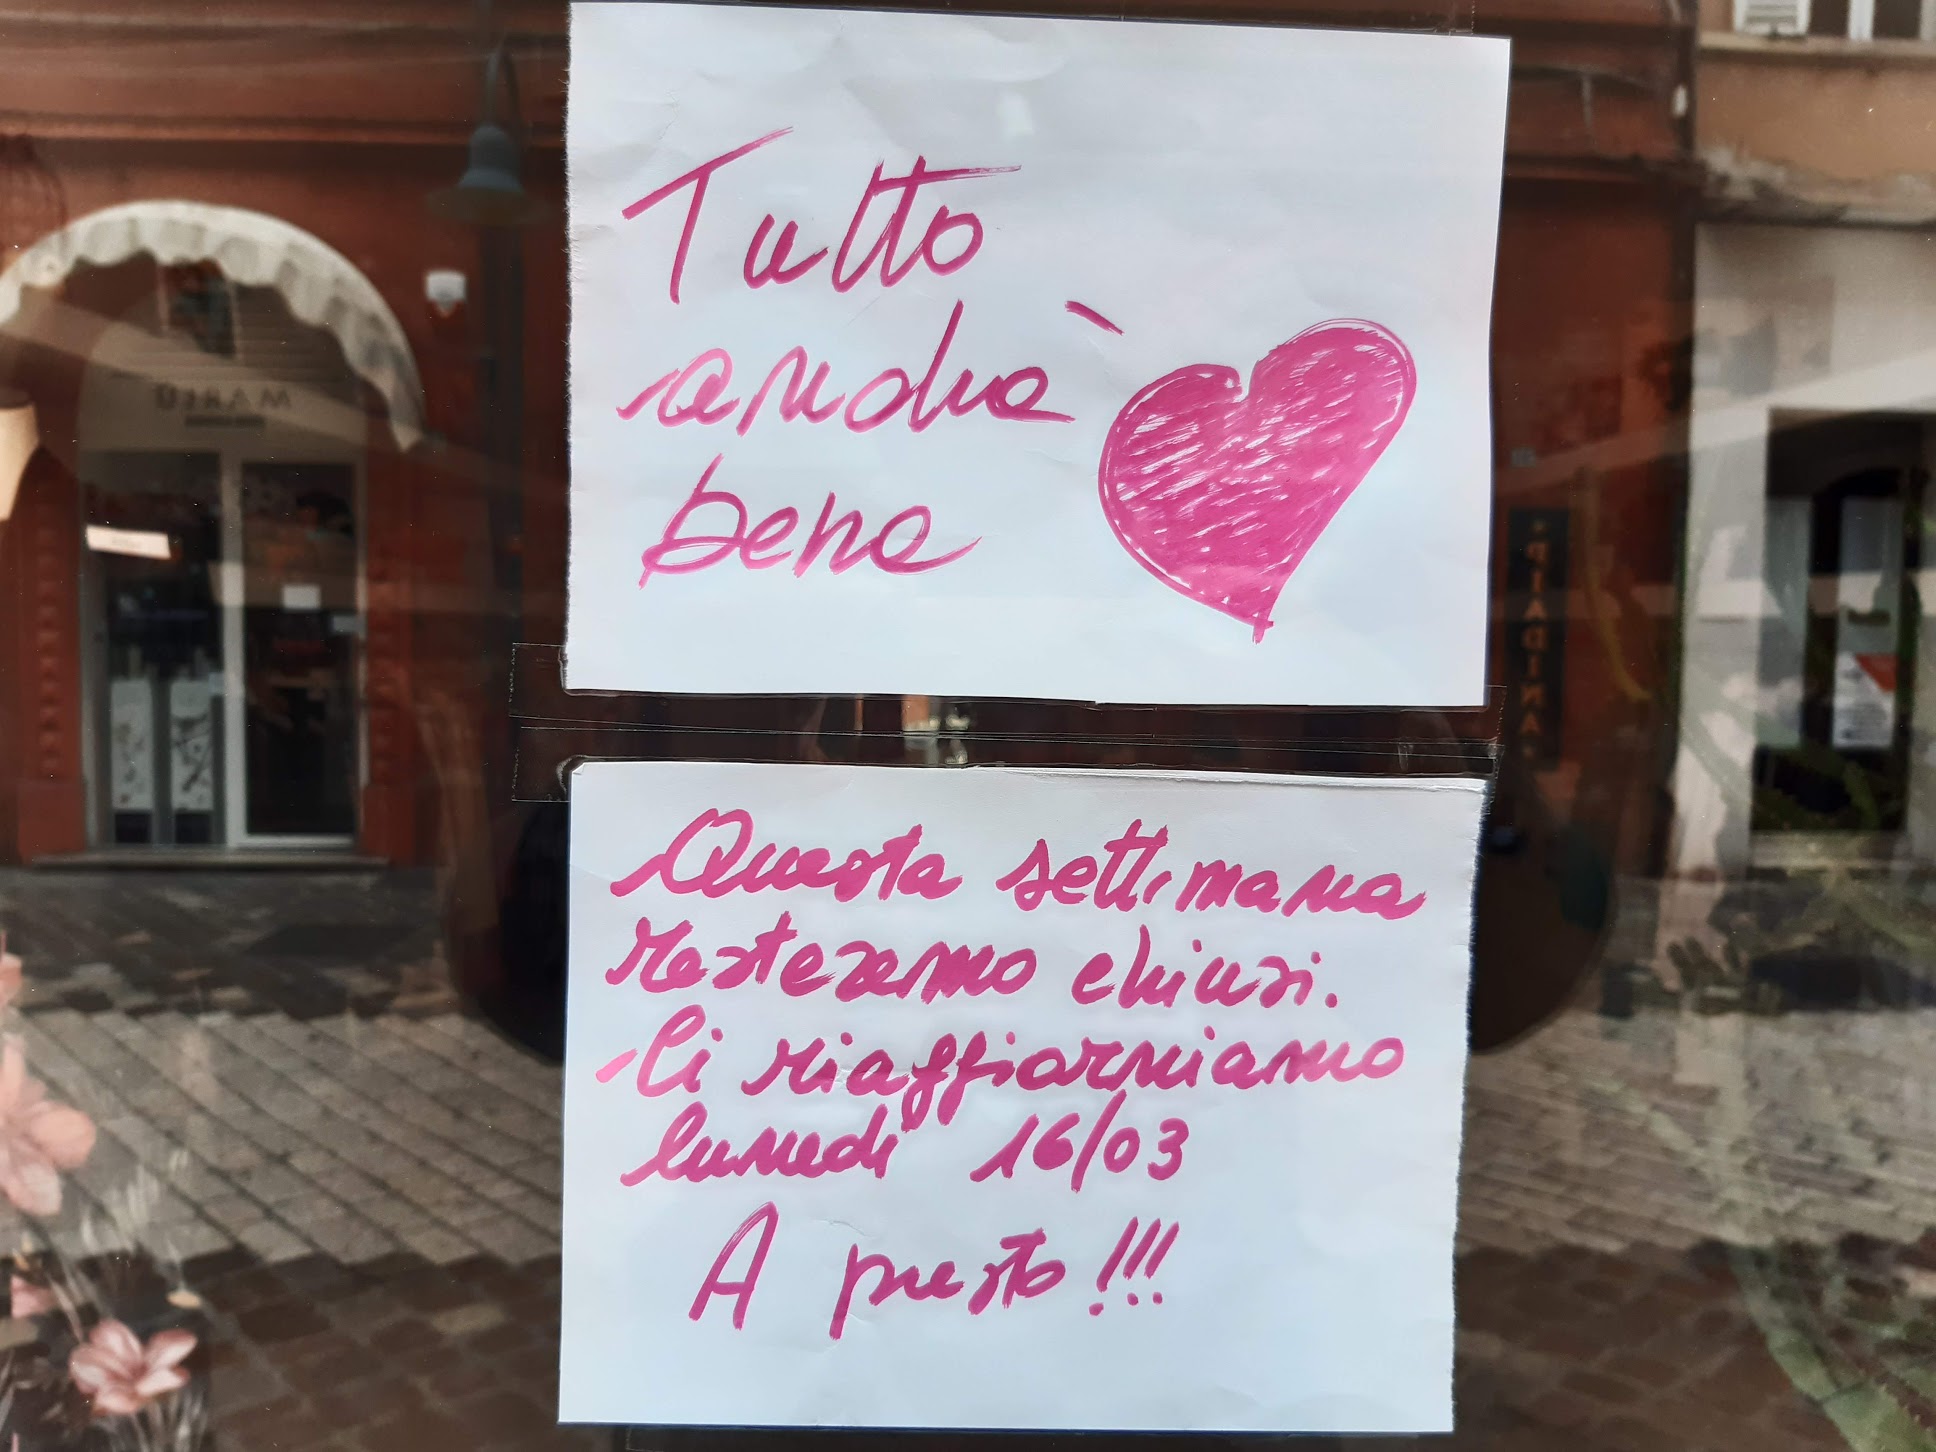 Tutto
andrà
bene
Questa settimana
resteremo chiusi.
Ci riaffiorniamo
lunedì 16/03
A presto!!!
MARLÙ
PIADINA